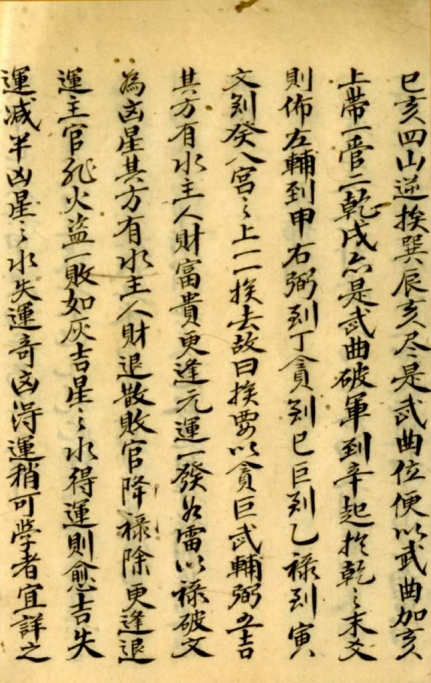 巳亥四山逆挨巽辰亥尽是武曲位便以武曲加亥
上帶一管二乾戌亦是武曲破軍到辛起扵乾之末爻
則佈左輔到甲右弼到丁貪到巳巨到乙禄到寅
文到癸八宮之上一一挨去故曰挨要以貪巨武輔弼五吉
其方有水主人財富貴更逢元運一發如雷以禄破文
為凶星其方有水主人財退散敗官降禄除更逢退
運主官非火盜一敗如灰吉星之水得運則愈吉失
運减半凶星之水失運奇凶得運稍可學者宜詳之